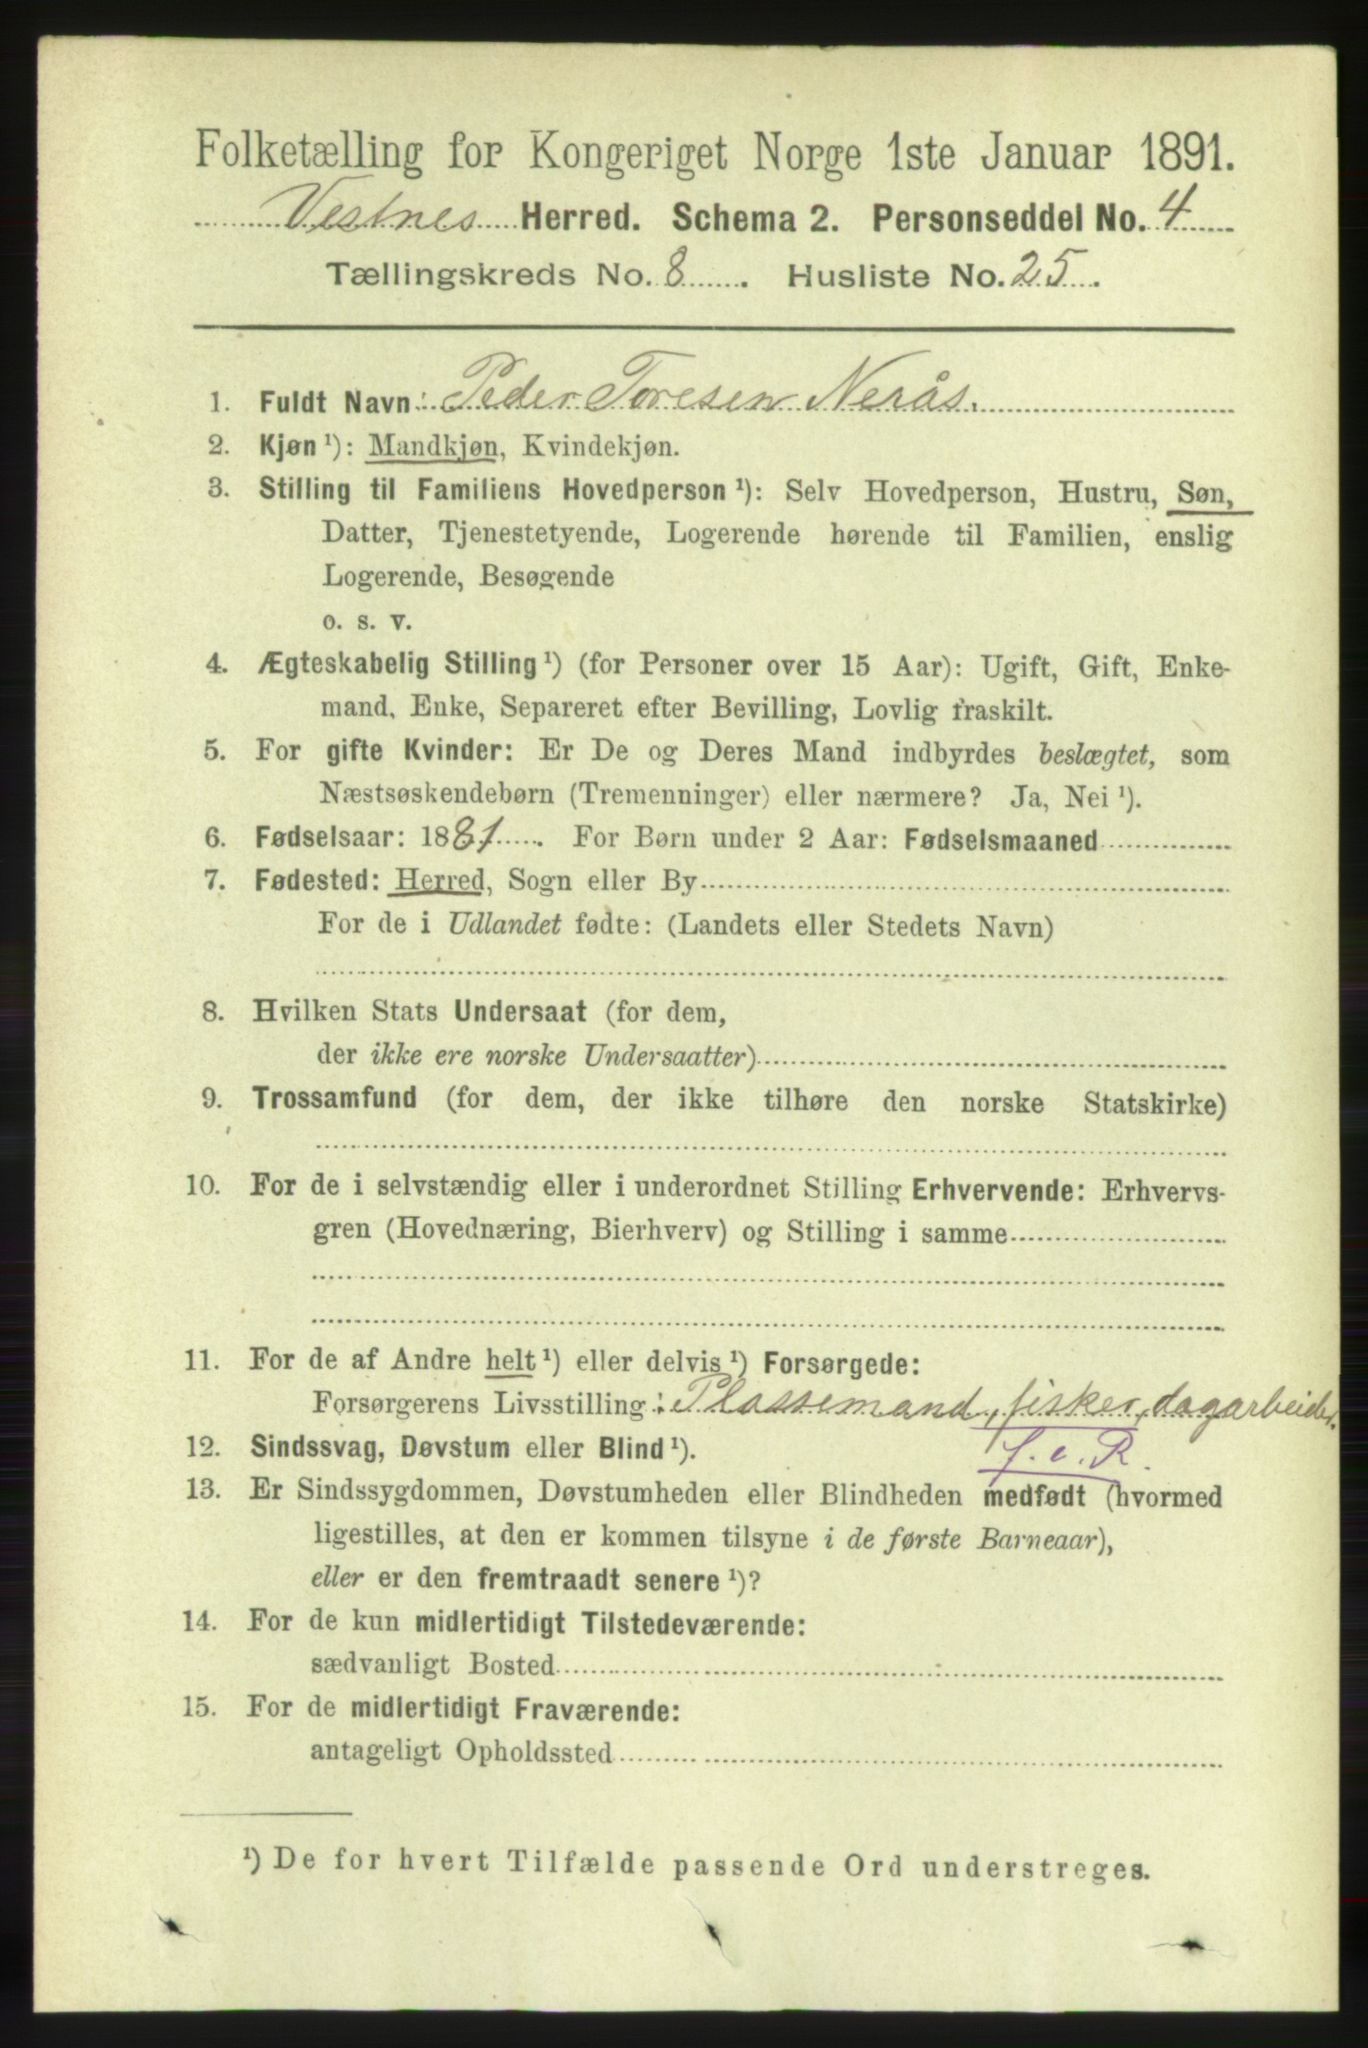 Folketælling for Kongeriget Norge 1ste Januar 1891.
Vestnes Herred. Schema 2. Personseddel No. 4
Tællingskreds No. 8. Husliste No. 25.
1. Fuldt Navn: Peder Toresen Nerås.
2. Kjøn ¹): Mandkjøn, Kvindekjøn.
3. Stilling til Familiens Hovedperson ¹): Selv Hovedperson, Hustru, Søn,
Datter, Tjenestetyende, Logerende hørende til Familien, enslig
Logerende, Besøgende
o. s. v.
4. Ægteskabelig Stilling ¹) (for Personer over 15 Aar): Ugift, Gift, Enke-
mand, Enke, Separeret efter Bevilling, Lovlig fraskilt.
5. For gifte Kvinder: Er De og Deres Mand indbyrdes beslægtet, som
Næstsøskendebørn (Tremenninger) eller nærmere? Ja, Nei ¹).
6. Fødselsaar: 1881. For Børn under 2 Aar: Fødselsmaaned
7. Fødested: Herred, Sogn eller By
For de i Udlandet fødte: (Landets eller Stedets Navn)
8. Hvilken Stats Undersaat (for dem,
der ikke ere norske Undersaatter)
9. Trossamfund (for dem, der ikke tilhøre den norske Statskirke)
10. For de i selvstændig eller i underordnet Stilling Erhvervende: Erhvervs-
gren (Hovednæring, Bierhverv) og Stilling i samme
11. For de af Andre helt ¹) eller delvis ¹) Forsørgede:
Forsørgerens Livsstilling: Plassemand, fisker, dagarbeider.
12. Sindssvag, Døvstum eller Blind ¹).
13. Er Sindssygdommen, Døvstumheden eller Blindheden medfødt (hvormed
ligestilles, at den er kommen tilsyne i de første Barneaar),
eller er den fremtraadt senere ¹)?
14. For de kun midlertidigt Tilstedeværende:
sædvanligt Bosted
15. For de midlertidigt Fraværende:
antageligt Opholdssted
¹) De for hvert Tilfælde passende Ord understreges.